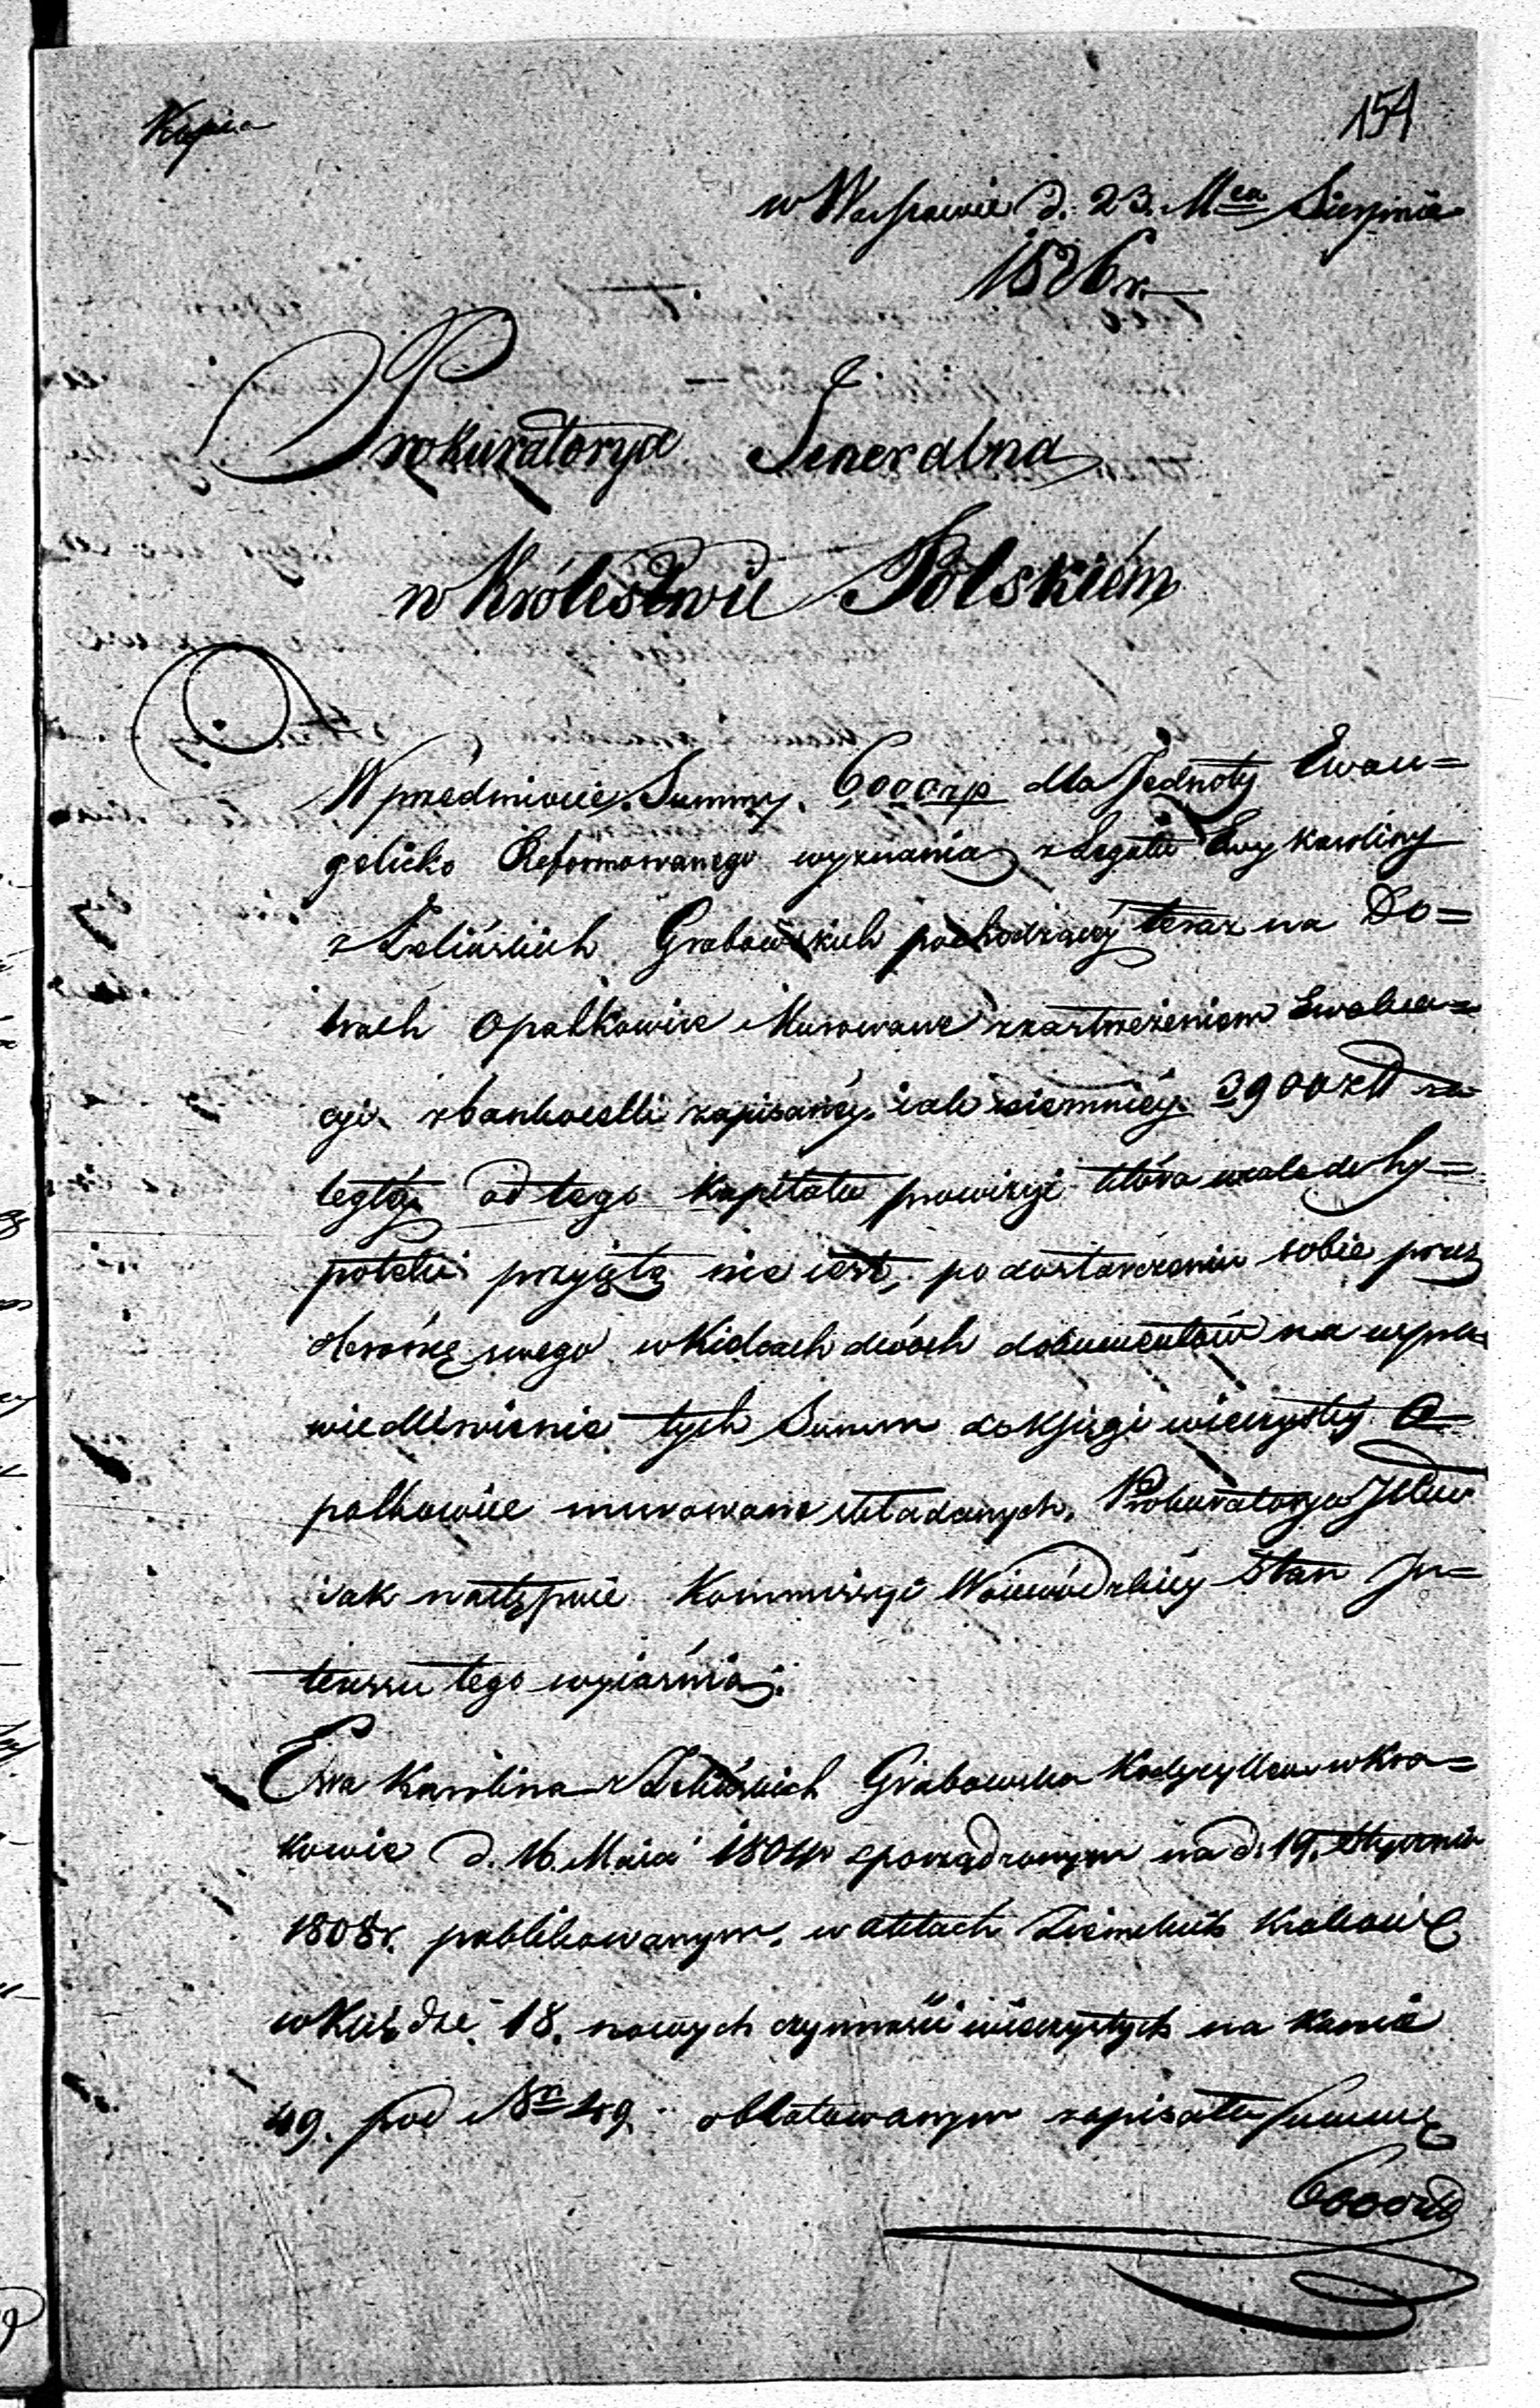 Kopia
154
w Warszawie d. 23. Mca Sierpnia
1826 r.
Prokuratorya Jeneralna
w Królestwie Polskiém
W przedmiocie Summy 6000 zp dla Jednoty Ewan=
gelicko Reformowanego wyznania z Legatu Ewy Karoliny
z Zelińskich Grabowskich pochodzącey teraz na Do=
brach Opatkowice Murowane z zastrzeżeniem Ewalua=
cyi z bankocetli zapisanéy iako niemniéy 3900 złł za
ległéy od tego kapitału prowizyi która wcale do hy=
poteki przyiętą nie iest, po dostarczeniu sobie przez
Obrońcę swego w Kielcach dwóch dokumentów na uspra
wiedliwienie tych Summ do Księgi wieczystéy O=
patkowice murowane składanych, Prokuratorya Jlna
iak następuie Kommissyi Woiewódzkiéy Stan In=
teressu tego wyiaśnia:
Ewa Karolina z Zelińskich Grabowska Kodycyllem w Kra=
kowie d. 16. Maia 1804 r sporządzonym na d. 19. Stycznia
1808 r. publikowanym, w aktach Ziemskich Krakow.
w Księdze 18. nowych czynności wieczystych na karcie
49. pod Nr 49. oblatowanym zapisała summę
6000 zł